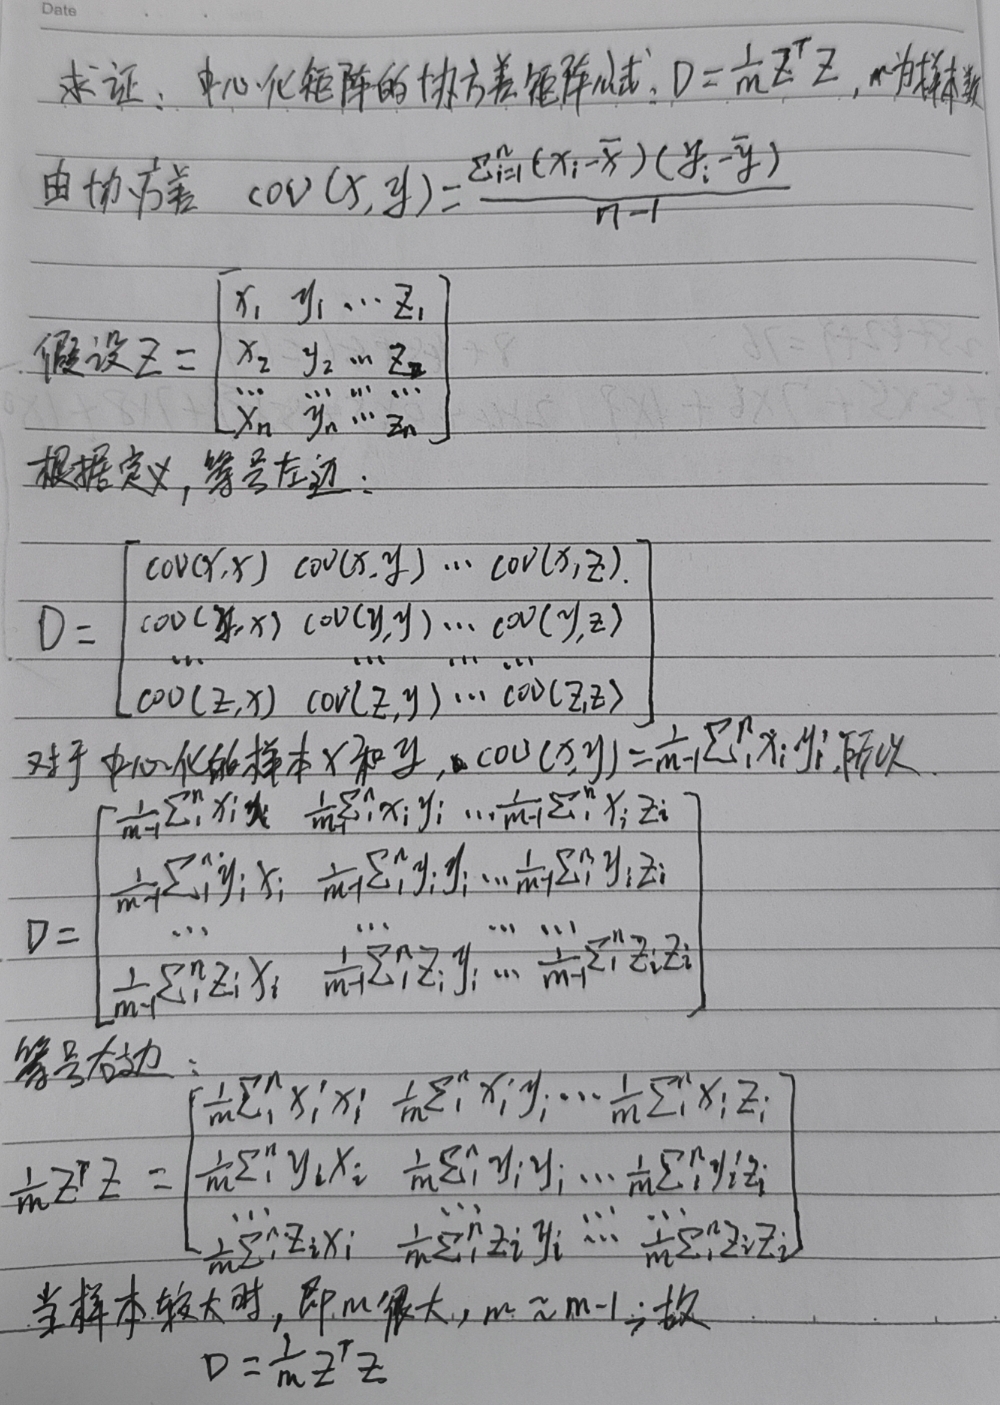 Date
求证：中心化矩阵的协方差矩阵公式：D = 1/m Z^T Z，m为样本数
由协方差 cov(x, y) = Σ_{i=1}^n (x_i - x̄)(y_i - ȳ) / n-1
假设 Z = [x_1 y_1 … z_1
x_2 y_2 … z_2
… … … …
x_n y_n … z_n]
根据定义，等号左边：
D = [cov(x,x) cov(x,y) … cov(x,z)
cov(y,x) cov(y,y) … cov(y,z)
… … … …
cov(z,x) cov(z,y) … cov(z,z)]
对于中心化的样本x和y，cov(x,y) = 1/(m-1) Σ_1^n x_i y_i，所以
D = [1/(m-1) Σ_1^n x_i x_i 1/(m-1) Σ_1^n x_i y_i … 1/(m-1) Σ_1^n x_i z_i
1/(m-1) Σ_1^n y_i x_i 1/(m-1) Σ_1^n y_i y_i … 1/(m-1) Σ_1^n y_i z_i
… … … …
1/(m-1) Σ_1^n z_i x_i 1/(m-1) Σ_1^n z_i y_i … 1/(m-1) Σ_1^n z_i z_i]
等号右边：
1/m Z^T Z = [1/m Σ_1^n x_i x_i 1/m Σ_1^n x_i y_i … 1/m Σ_1^n x_i z_i
1/m Σ_1^n y_i x_i 1/m Σ_1^n y_i y_i … 1/m Σ_1^n y_i z_i
… … … …
1/m Σ_1^n z_i x_i 1/m Σ_1^n z_i y_i … 1/m Σ_1^n z_i z_i]
当样本较大时，即m很大，m ≈ m-1；故
D = 1/m Z^T Z